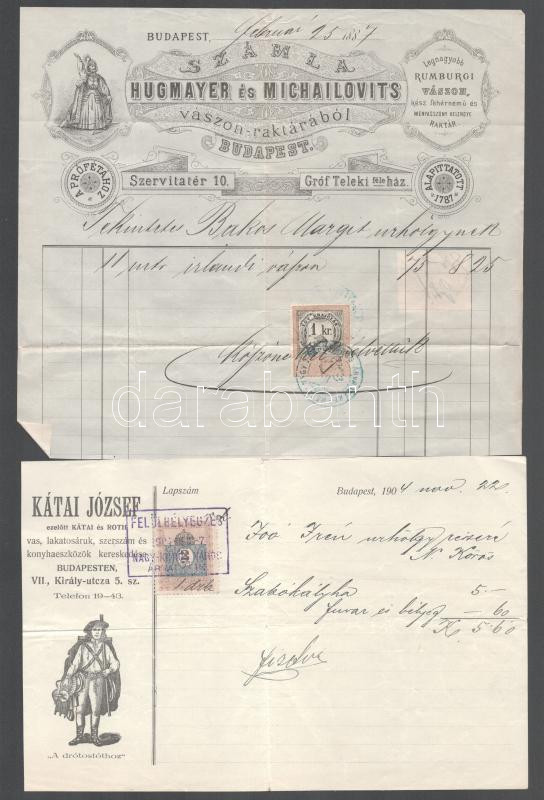 BUDAPEST, Február 25 1887
SZÁMLA
HUGMAYER és MICHAILOVITS
vászon-raktárából
BUDAPEST.
Legnagyobb
RUMBURGI
VÁSZON,
kész fehérnemű és
MENYASSZONY KELENGYE
RAKTÁR.
A PRÓFÉTÁHOZ
Szervitatér 10.
Gróf Teleki féle ház.
ALAPITTATOTT
1787
Tekintetes Bakos Margit urhölgynek
11 mtr irlandi vászon 75 8 25
1 kr.
Köszönettel
darabanth
KÁTAI JÓZSEF
ezelőtt KÁTAI és ROTH
vas, lakatosáruk, szerszám és
konyhaeszközök kereskedése
BUDAPESTEN,
VII., Király-utcza 5. sz.
Telefon 19-43.
„A drótostóthoz"
Lapszám
Budapest, 1904 nov. 22.
FELÜLBÉLYEGZÉS
NAGY-KŐRÖS VÁROS
2
1 drb
Foó Irén urhölgy részére
N Kőrös
Szabókályha 5.—
fuvar és bélyeg — 60
K. 5.60
fizetve